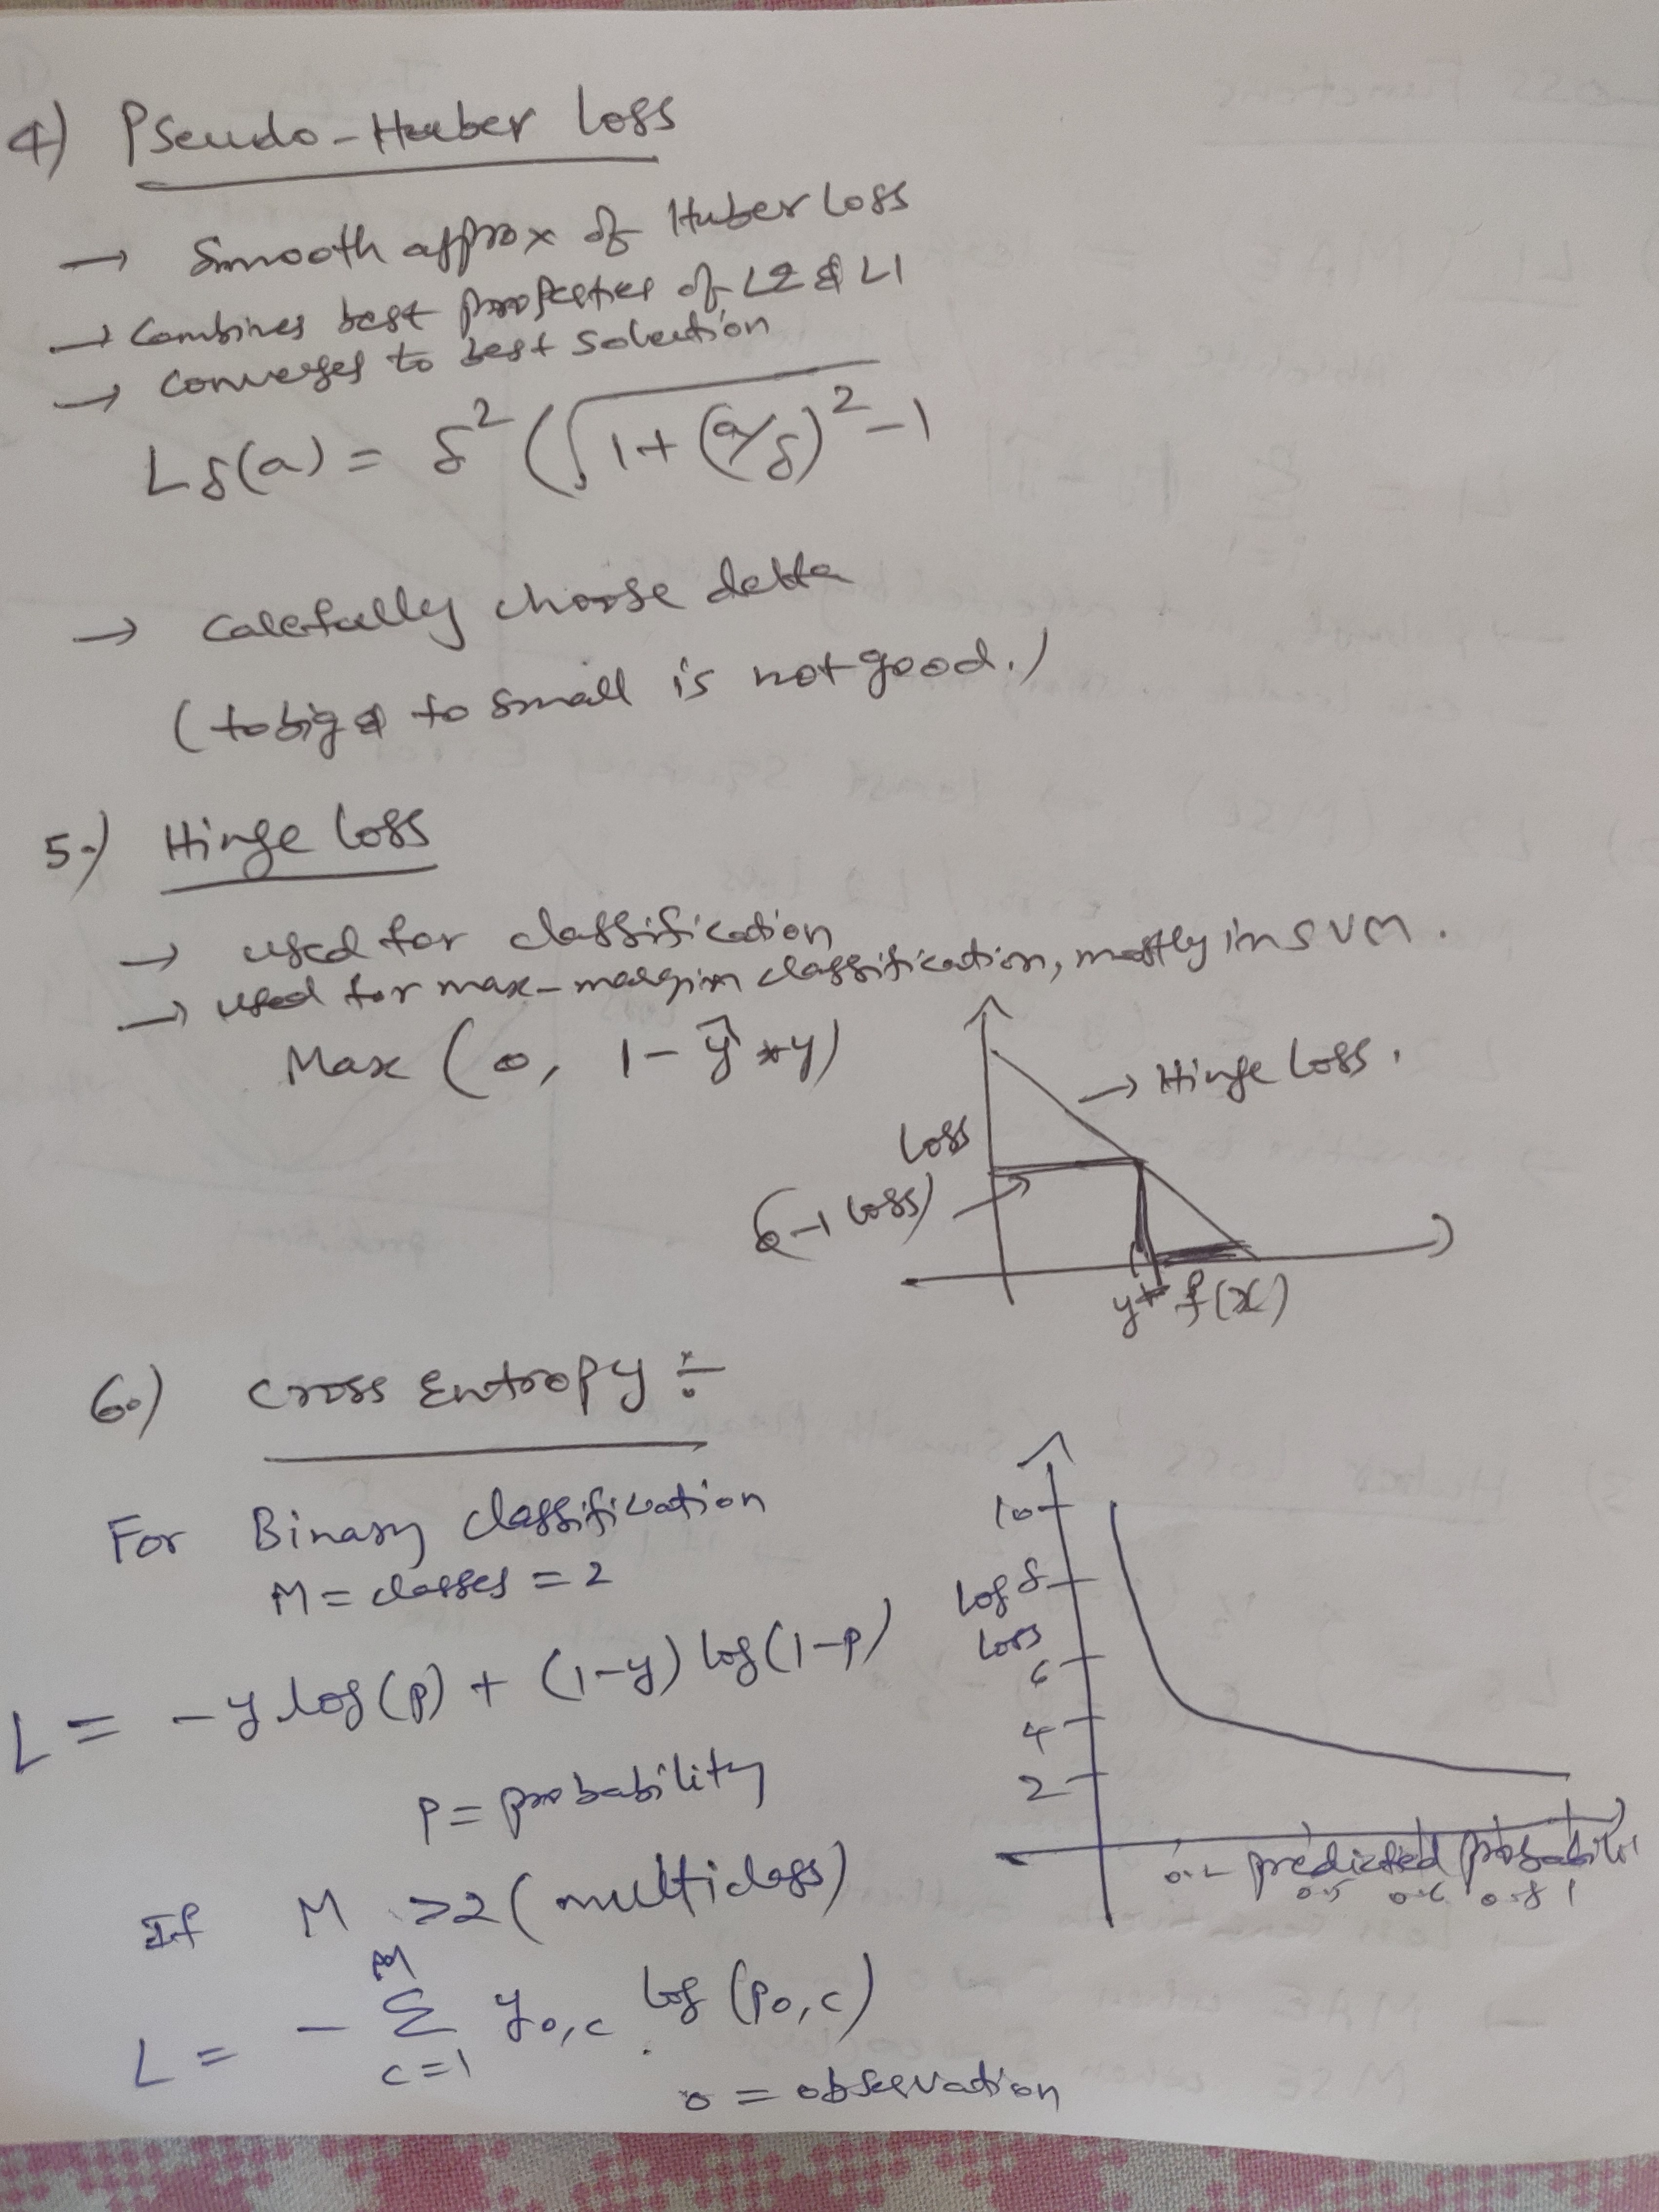 4) Pseudo-Huber loss
→ Smooth approx of Huber Loss
→ Combines best properties of L2 & L1
→ converges to best solution
Lδ(a) = δ² (√1+(a/δ)² -1
→ carefully choose delta
(to big & to small is not good.)
5.) Hinge loss
→ used for classification
→ used for max-margin classification, mostly in SVM.
Max (0, 1- ŷ *y)
→ Hinge loss.
loss
(0-1 loss)
y* f(x)
6.) Cross Entropy ÷
For Binary classification
M = classes = 2
L = -y log(p) + (1-y) log(1-p)
P = probability
10
8
Log
Loss
6
4
2
predicted probabiliti
0.2 0.5 0.6 0.8 1
If M >2 (multiclass)
L = - M Σ c=1 yo,c log (po,c)
o = observation